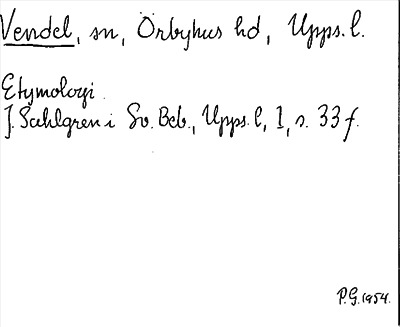 Vendel, sn, Örbyhus hd, Upps. l.
Etymologi.
J. Sahlgren i Sv. Beb., Upps. l, 1, s. 33 f.
P.G. 1954.